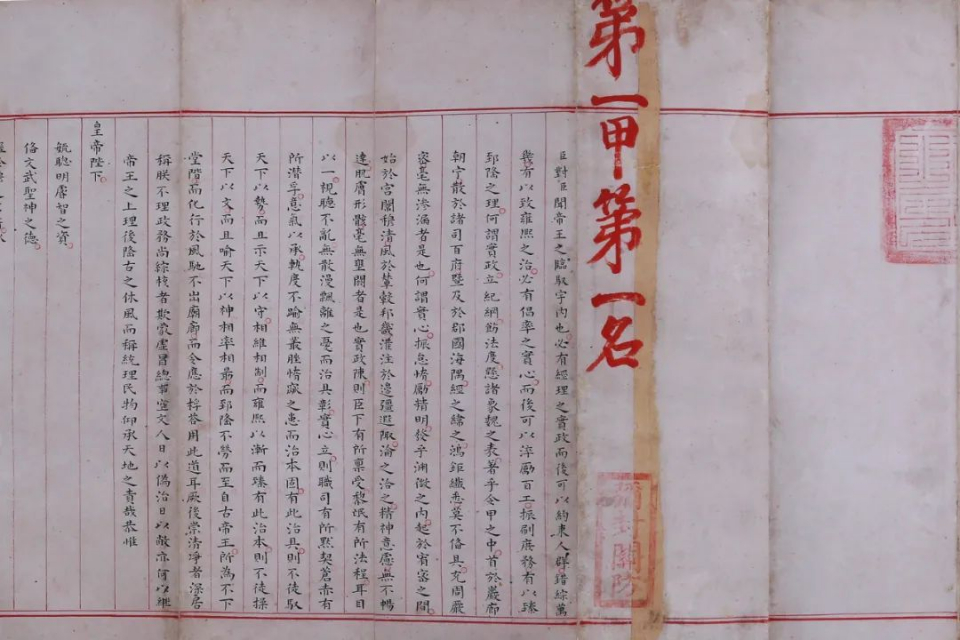 第一甲第一名
臣對臣聞帝王之臨馭宇內也必有經理之實政而後可以約束人群錯綜萬
幾有以致雍熙之治必有倡率之實心而後可以淬勵百工振刷庶務有以臻
郅隆之理何謂實政立紀綱飭法度懸諸象魏之表著乎令甲之中首於巖廊
朝宁散於諸司百府暨及於郡國海隅經之緯之鴻鉅纖悉莫不偹具充周嚴
密毫無滲漏者是也何謂實心振怠惰勵精明發乎淵微之內起於宥密之間
始於宮闈穆清風於輦轂邦畿灌注於邊疆遐陬淪之洽之精神意慮無不暢
達肌膚形骸毫無壅閼者是也實政陳則臣下有所稟受黎氓有所法程耳目
以一視聽不亂無散漫飄離之憂而治具彰實心立則職司有所默契蒼赤有
所潛孚意氣以承軌度不踰無叢脞惰窳之患而治本固有此治具則不徒馭
天下以勢而且示天下以守相維相制而雍熙以漸而臻有此治本則不徒操
天下以文而且喻天下以神相率相勗而郅隆不勞而至自古帝王所為不下
堂階而化行於風馳不出廟廊而令應於桴荅用此道耳厥後崇清凈者深居
稱朕不理政務尚綜核者欺蒙虛冒總事空文人日以偽治日以敝亦何以繼
帝王之上理後隆古之休風而稱統理民物仰承天地之責哉恭惟
皇帝陛下
毓聰明睿智之資
偹文武聖神之德